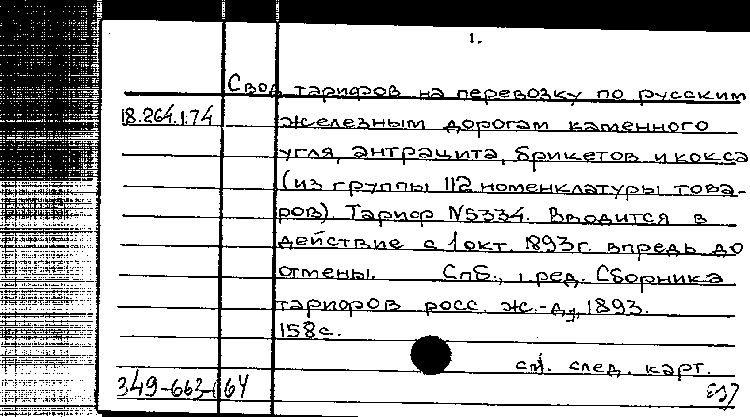 1.
Свод тарифов на перевозку по русским
18.264.1.74 железным дорогам каменного
угля, антрацита, брикетов и кокса
(из группы 112 номенклатуры това-
ров). Тариф №5334. Вводится в
действие с 1 окт. 1893г. впредь до
отмены. Спб., ред. Сборника
тарифов росс. ж.-д., 1893.
158с.
см. след. карт.
349-663-64